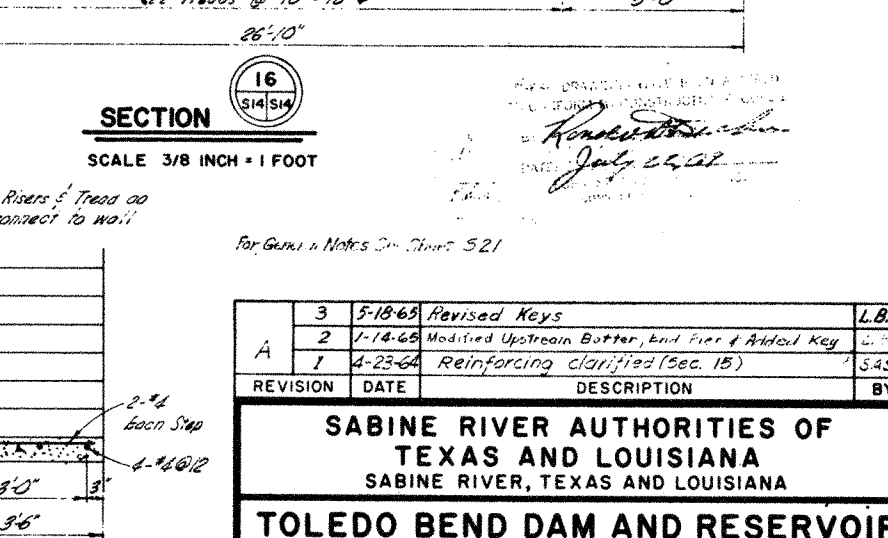 26'-10"
16
S14 S14
SECTION
SCALE 3/8 INCH = 1 FOOT
DATE: July
Risers & Tread do
connect to wall
For General Notes See Sheet S21
3 5-18-65 Revised Keys L.B.
2 1-14-65 Modified Upstream Batter, End Pier & Added Key
A
1 4-23-64 Reinforcing clarified (Sec. 15) S.A.S
REVISION DATE DESCRIPTION BY
2-#4
Each Step
4-#4@12
3'-0" 3"
3'-6"
SABINE RIVER AUTHORITIES OF
TEXAS AND LOUISIANA
SABINE RIVER, TEXAS AND LOUISIANA
TOLEDO BEND DAM AND RESERVOIR